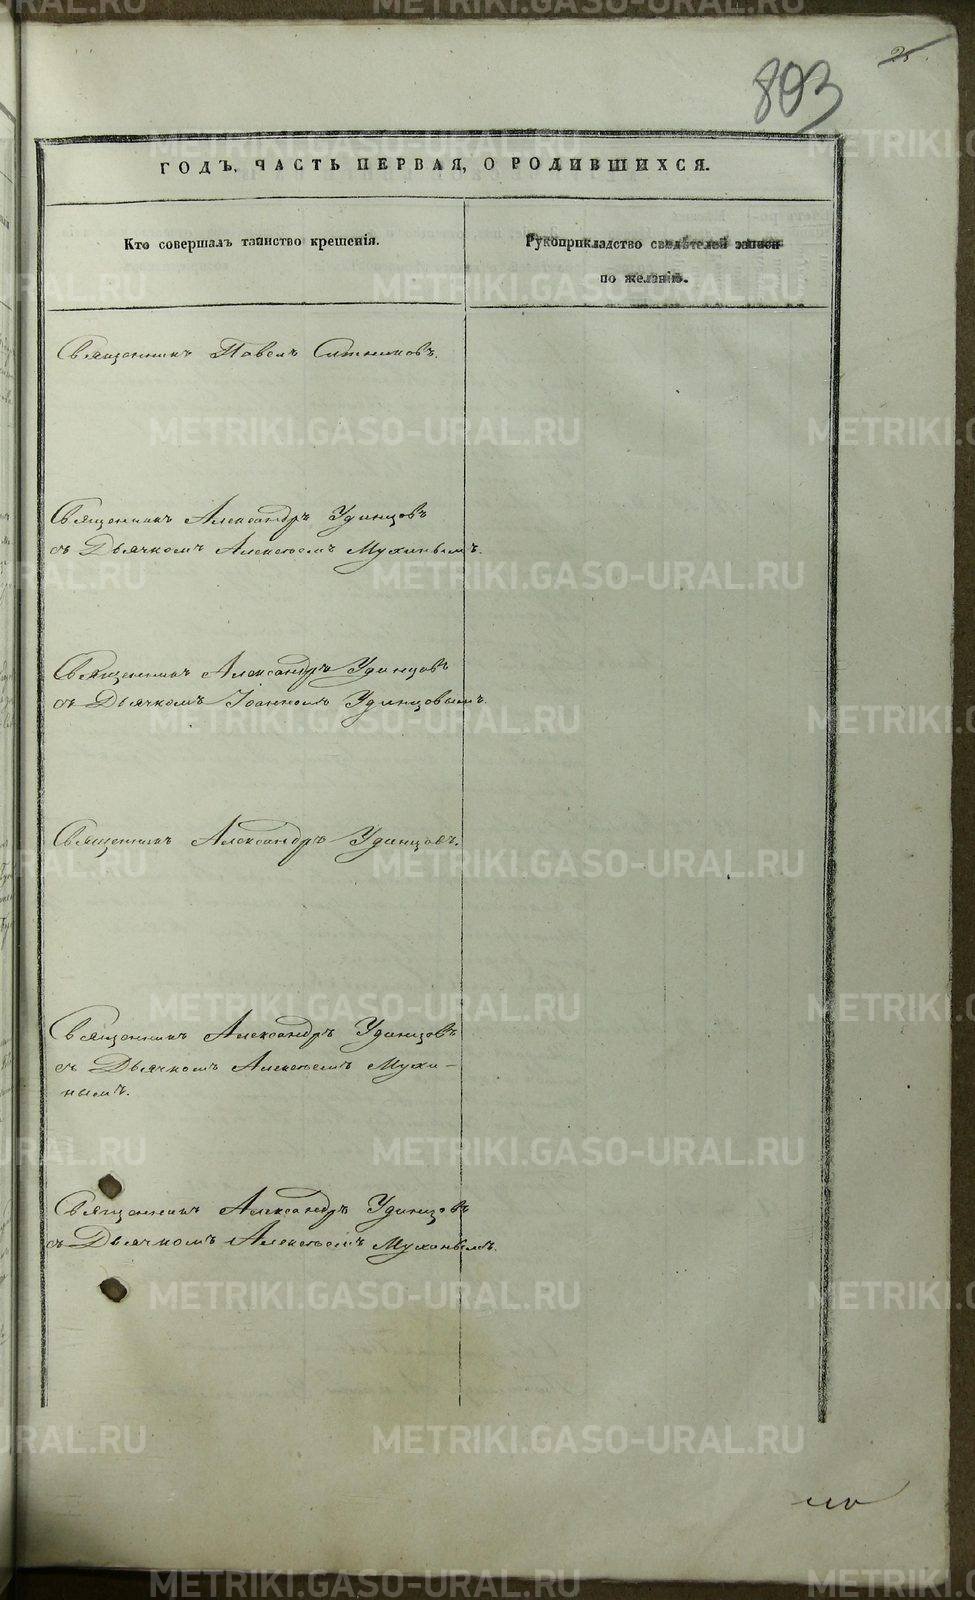 25.
803
ГОДЪ, ЧАСТЬ ПЕРВАЯ, О РОДИВШИХСЯ.
Кто совершалъ таинство крещенія.
Рукоприкладство свидѣтелей записи
по желанію.
Священникъ Павелъ Ситниковъ.
Священникъ Александръ Удинцовъ
съ Дьячкомъ Алексѣемъ Мухинымъ.
Священникъ Александръ Удинцовъ
съ Дьячкомъ Іоанномъ Удинцовымъ.
Священникъ Александръ Удинцовъ.
Священникъ Александръ Удинцовъ
съ Дьячкомъ Алексѣемъ Мухи-
нымъ.
Священникъ Александръ Удинцовъ
съ Дьячкомъ Алексѣемъ Мухинымъ.
METRIKI.GASO-URAL.RU